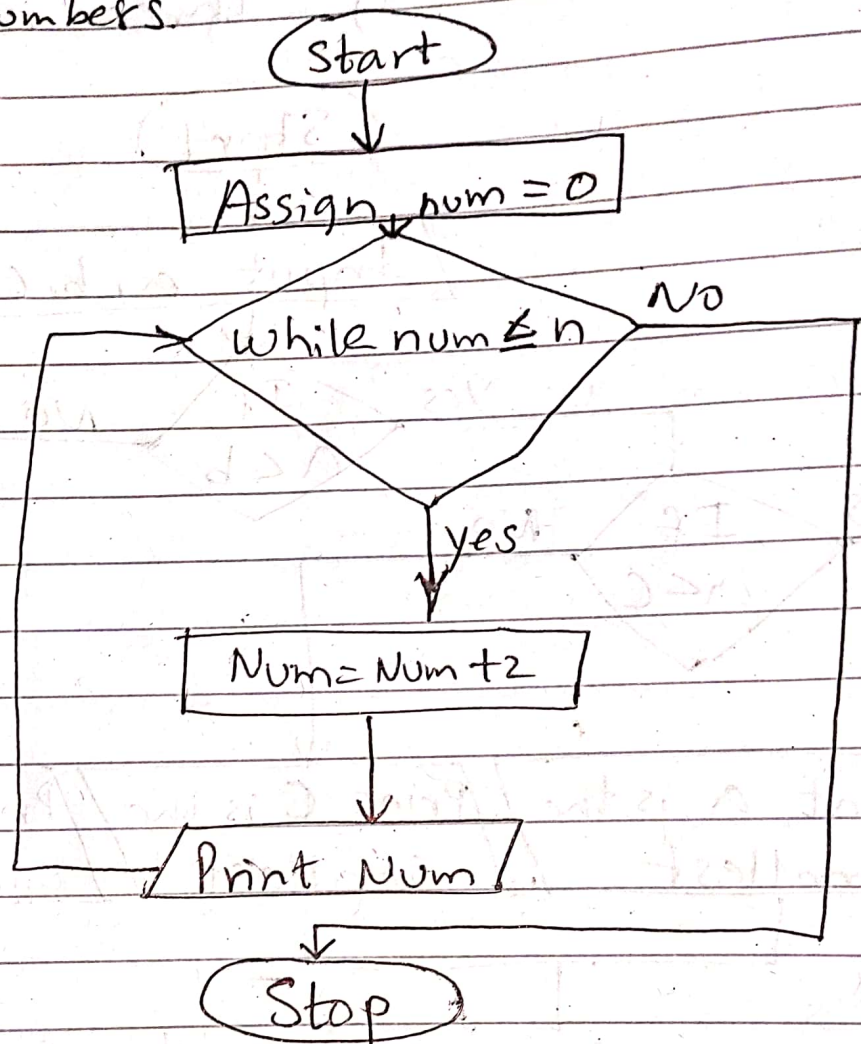 umbers.
Start
Assign num = 0
while num ≤ n
No
yes
Num = Num + 2
Print Num
Stop